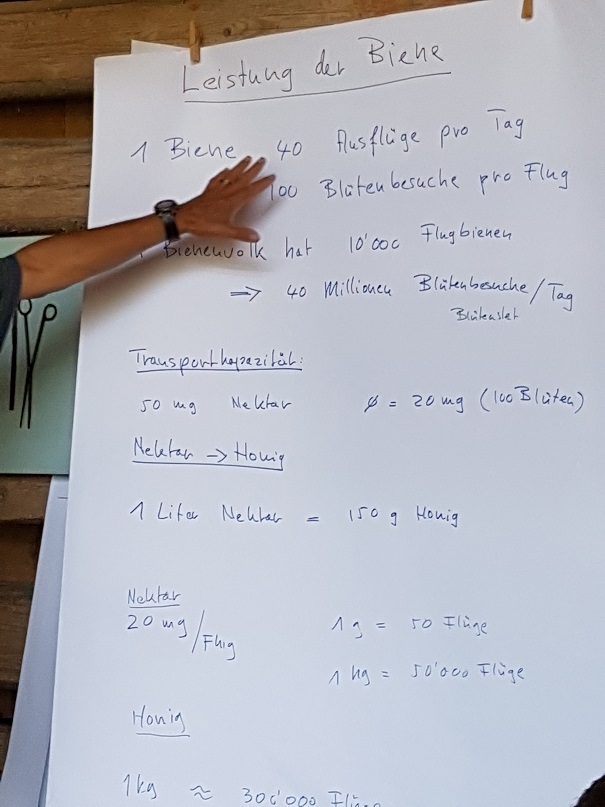 Leistung der Biene
1 Biene 40 Ausflüge pro Tag
100 Blütenbesuche pro Flug
Bienenvolk hat 10'000 Flugbienen
=> 40 Millionen Blütenbesuche/Tag
Transportkapazität:
50 mg Nektar ø = 20 mg (100 Blüten)
Nektar → Honig
1 Liter Nektar = 150 g Honig
Nektar
20 mg/Flug 1 g = 50 Flüge
1 kg = 50'000 Flüge
Honig
1kg ≈ 300'000 Flüge